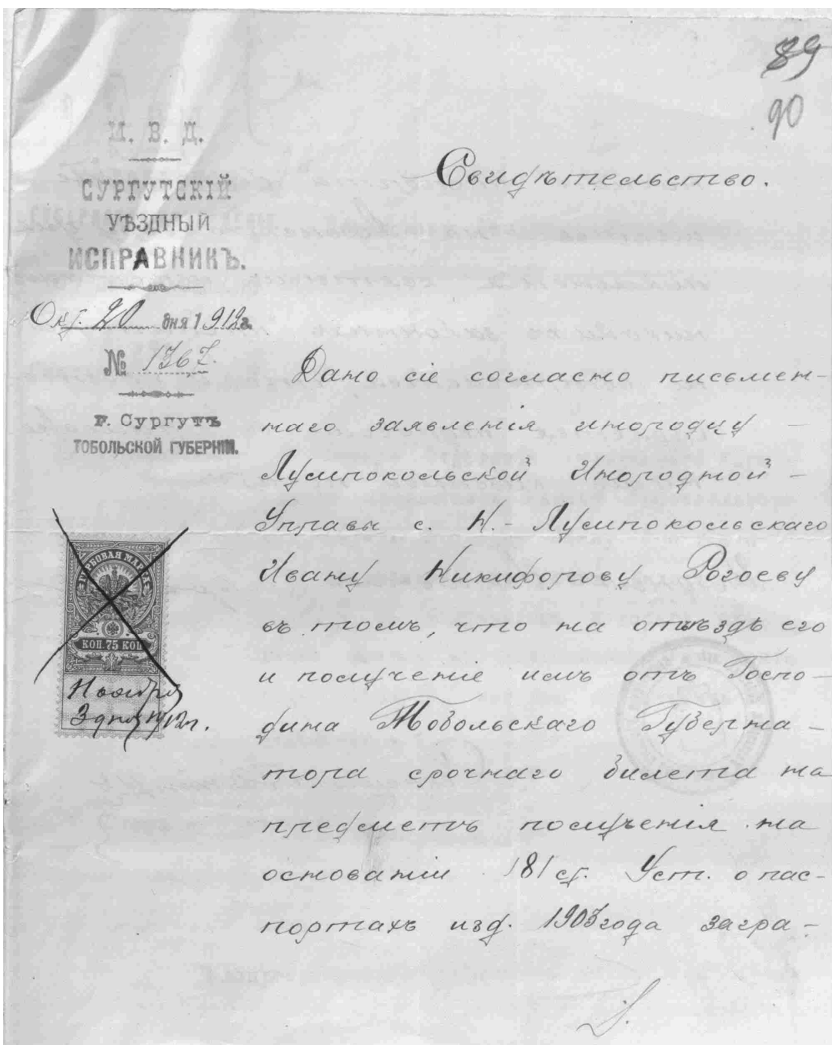 89
90
М. В. Д.
СУРГУТСКІЙ
УѢЗДНЫЙ
ИСПРАВНИКЪ.
Окт. 20 дня 1912 г.
№ 1367.
г. Сургутъ
ТОБОЛЬСКОЙ ГУБЕРНІИ.
Свидѣтельство.
Дано сіе согласно письмен-
наго заявленія инородцу -
Лумпокольской Инородной -
Управы с. Н.- Лумпокольскаго
Ивану Никифорову Рогоеву
въ томъ, что на отъѣздъ его
и полученіе имъ отъ Госпо-
дина Тобольскаго Губерна-
тора срочнаго билета на
предметъ полученія на
основаніи 181 ст. Уст. о пас-
портахъ изд. 1903 года загра-
ГЕРБОВАЯ МАРКА
КОП. 75 КОП.
Ноября
3 дня 1912 г.